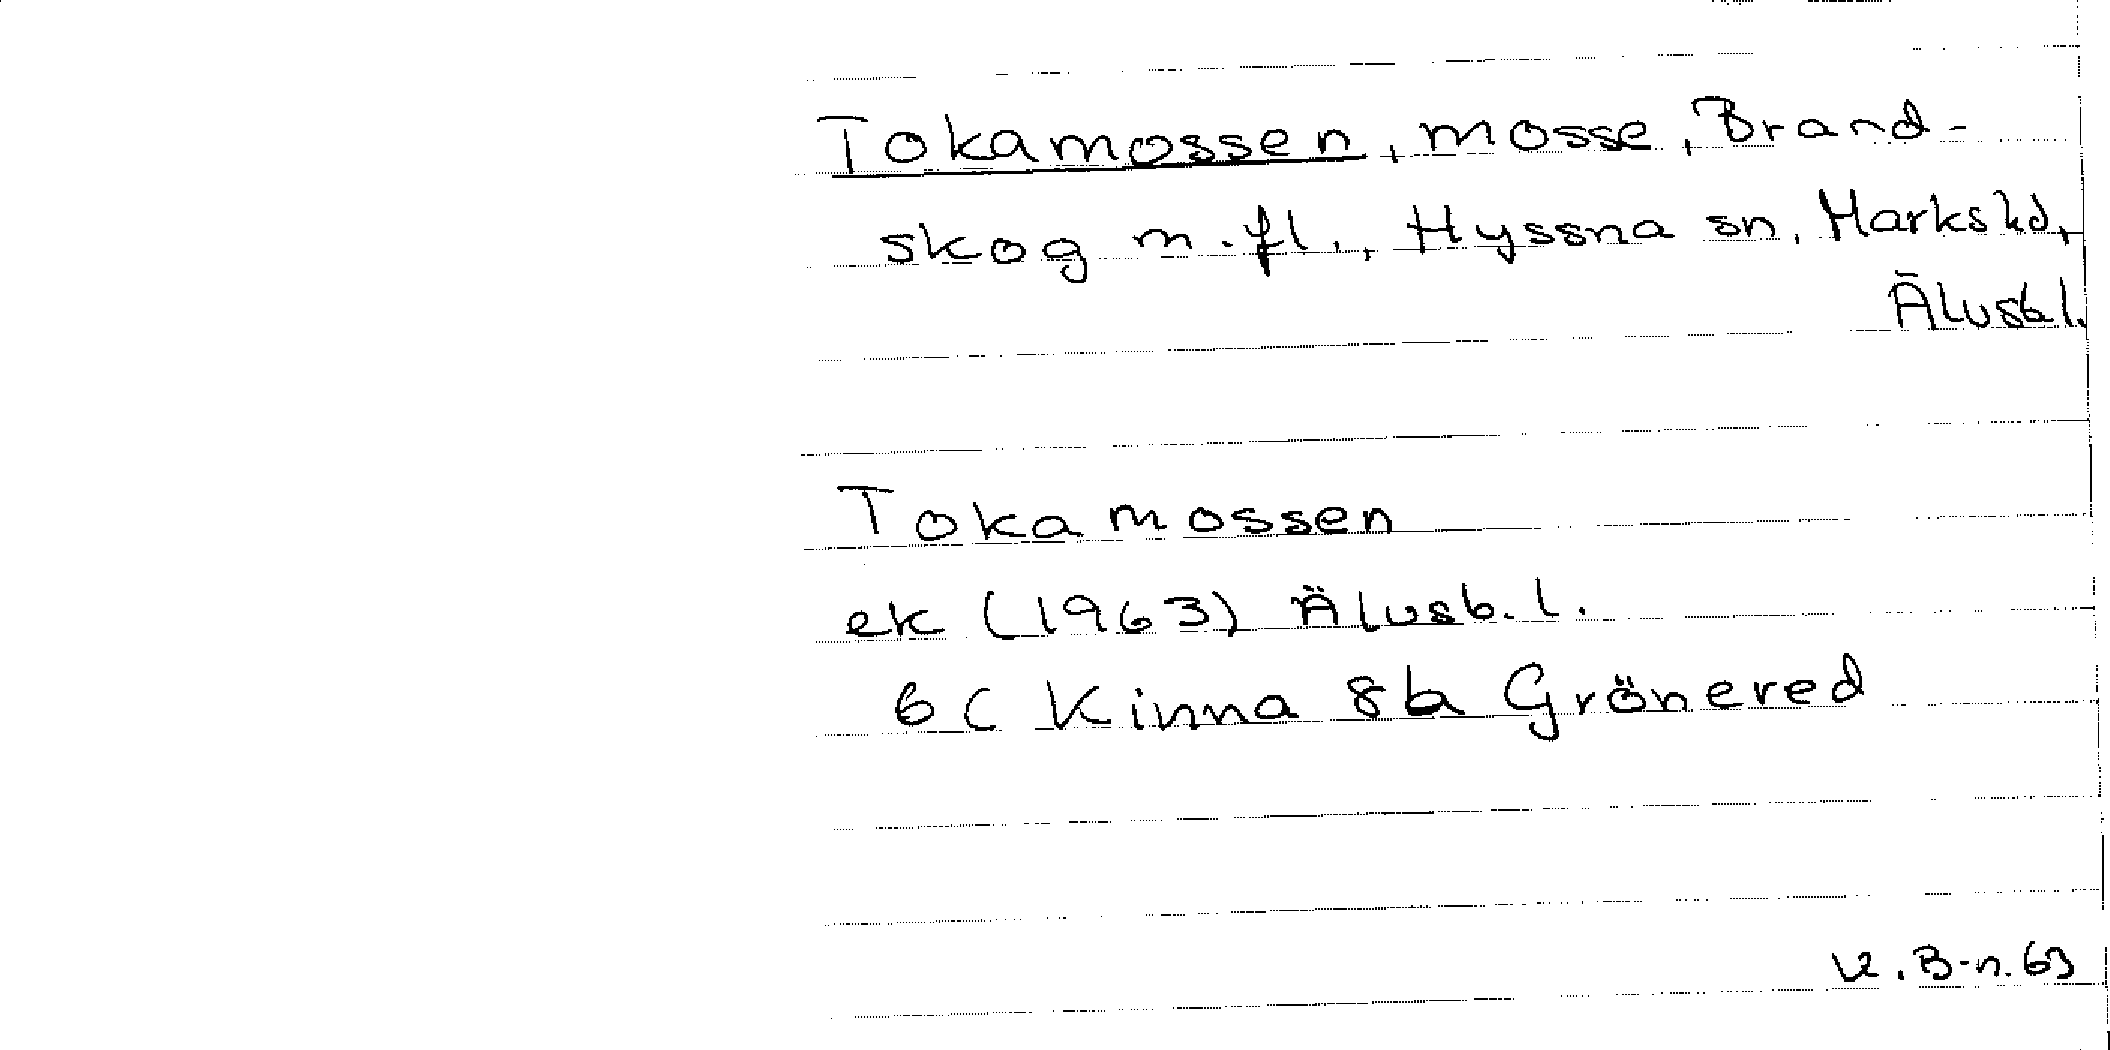 Tokamossen, mosse, Brand-
skog m.fl., Hyssna sn, Marks hd,
Älvsb l.
Tokamossen
ek (1963) Älvsb. l.
6C Kinna 8b Grönered
B-n. 63